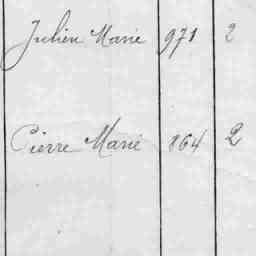 Julien Marie 971 2
Pierre Marie 864 2